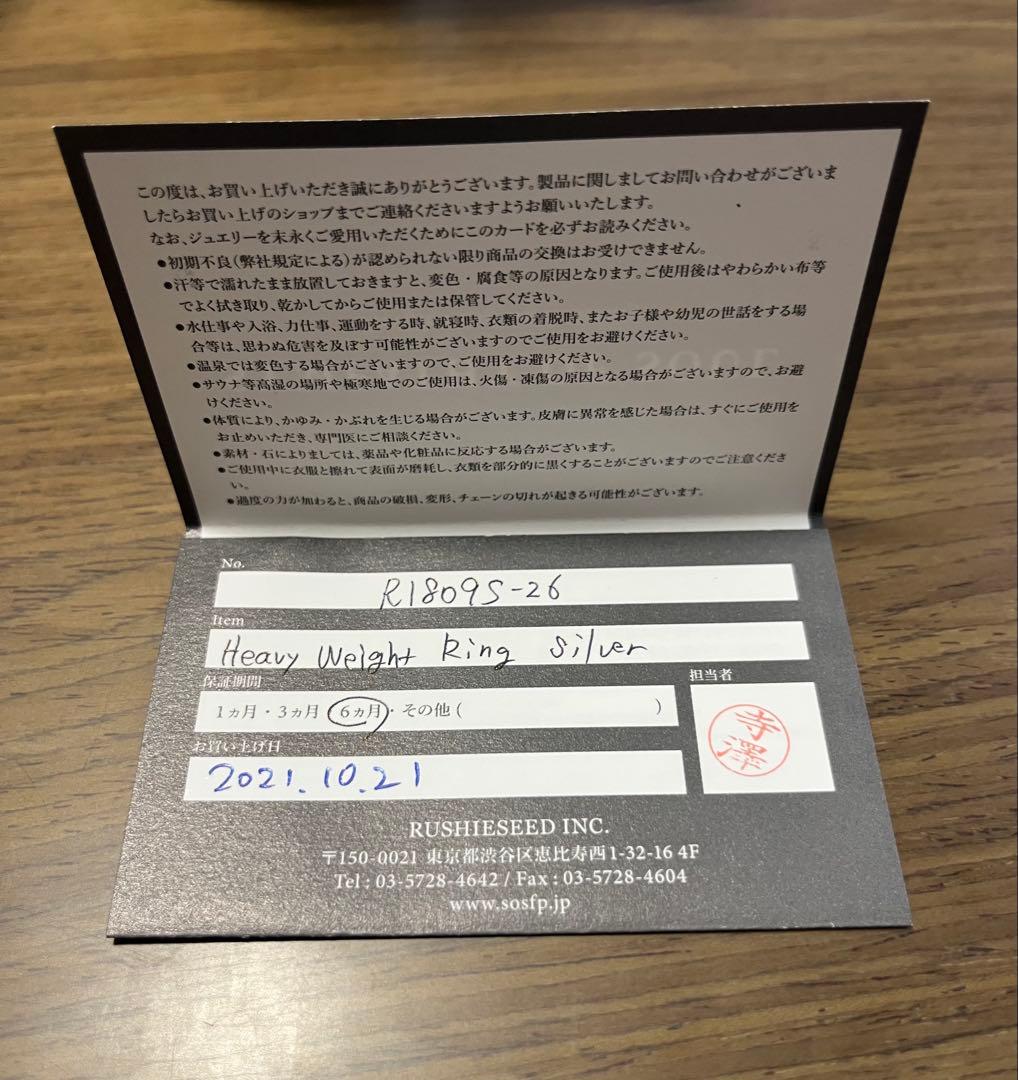 この度は、お買い上げいただき誠にありがとうございます。製品に関しましてお問い合わせがございま
したらお買い上げのショップまでご連絡くださいますようお願いいたします。
なお、ジュエリーを末永くご愛用いただくためにこのカードを必ずお読みください。
●初期不良(弊社規定による)が認められない限り商品の交換はお受けできません。
●汗等で濡れたまま放置しておきますと、変色・腐食等の原因となります。ご使用後はやわらかい布等
でよく拭き取り、乾かしてからご使用または保管してください。
●水仕事や入浴、力仕事、運動をする時、就寝時、衣類の着脱時、またお子様や幼児の世話をする場
合等は、思わぬ危害を及ぼす可能性がございますのでご使用をお避けください。
●温泉では変色する場合がございますので、ご使用をお避けください。
●サウナ等高湿の場所や極寒地でのご使用は、火傷・凍傷の原因となる場合がございますので、お避
けください。
●体質により、かゆみ・かぶれを生じる場合がございます。皮膚に異常を感じた場合は、すぐにご使用を
お止めいただき、専門医にご相談ください。
●素材・石によりましては、薬品や化粧品に反応する場合がございます。
●ご使用中に衣服と擦れて表面が磨耗し、衣類を部分的に黒くすることがございますのでご注意くださ
い。
●過度の力が加わると、商品の破損、変形、チェーンの切れが起きる可能性がございます。
No.
R1809S-26
Item
Heavy Weight Ring Silver
保証期間
1ヵ月・3ヵ月・6ヵ月・その他( )
担当者
寺澤
お買い上げ日
2021.10.21
RUSHIESEED INC.
〒150-0021 東京都渋谷区恵比寿西1-32-16 4F
Tel : 03-5728-4642 / Fax : 03-5728-4604
www.sosfp.jp